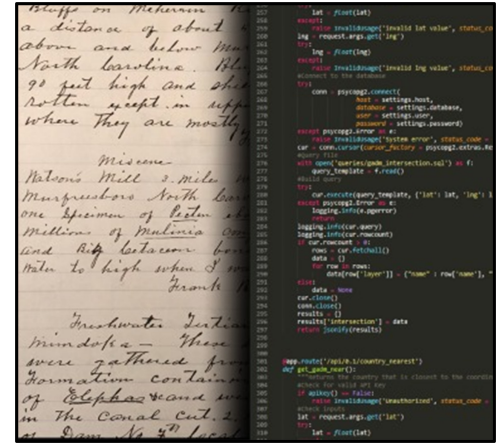 Bluffs on Meherrin
a distance of about
above and below Mur
North Carolina. Blu
90 feet high and she
rotten except in upp
where they are mostly
Miocene
Watson's Mill 3 miles
Murfreesboro North Car
one Specimen of Pecten
Millions of Mulinia
and Big Cetacean bon
Water to high when I
Frank
Freshwater Tertia
These
were gathered fro
Formation contain
of Elephas and
in the Canal cut
Dam No
257 lat = float(lat)
except:
raise InvalidUsage('Invalid lat value', status_co
lng = request.args.get('lng')
try:
lng = float(lng)
except:
raise InvalidUsage('Invalid lng value', status_co
#Connect to the database
try:
conn = psycopg2.connect(
host = settings.host,
database = settings.database,
user = settings.user,
password = settings.password)
except psycopg2.Error as e:
raise InvalidUsage('System error', status_code =
cur = conn.cursor(cursor_factory = psycopg2.extras.Re
#Query file
with open('queries/gadm_intersection.sql') as f:
query_template = f.read()
#Build query
try:
cur.execute(query_template, {'lat': lat, 'lng': l
except psycopg2.Error as e:
logging.info(e.pgerror)
return
logging.info(cur.query)
logging.info(cur.rowcount)
if cur.rowcount > 0:
rows = cur.fetchall()
data = {}
for row in rows:
data[row['layer']] = {"name" : row['name'], "
else:
data = None
cur.close()
conn.close()
results = {}
results['intersection'] = data
return jsonify(results)
@app.route('/api/0.1/country_nearest')
def get_gadm_near():
#Check for valid API Key
if apikey() == False:
raise InvalidUsage('Unauthorized', status_code =
#Check inputs
lat = request.args.get('lat')
try:
lat = float(lat)